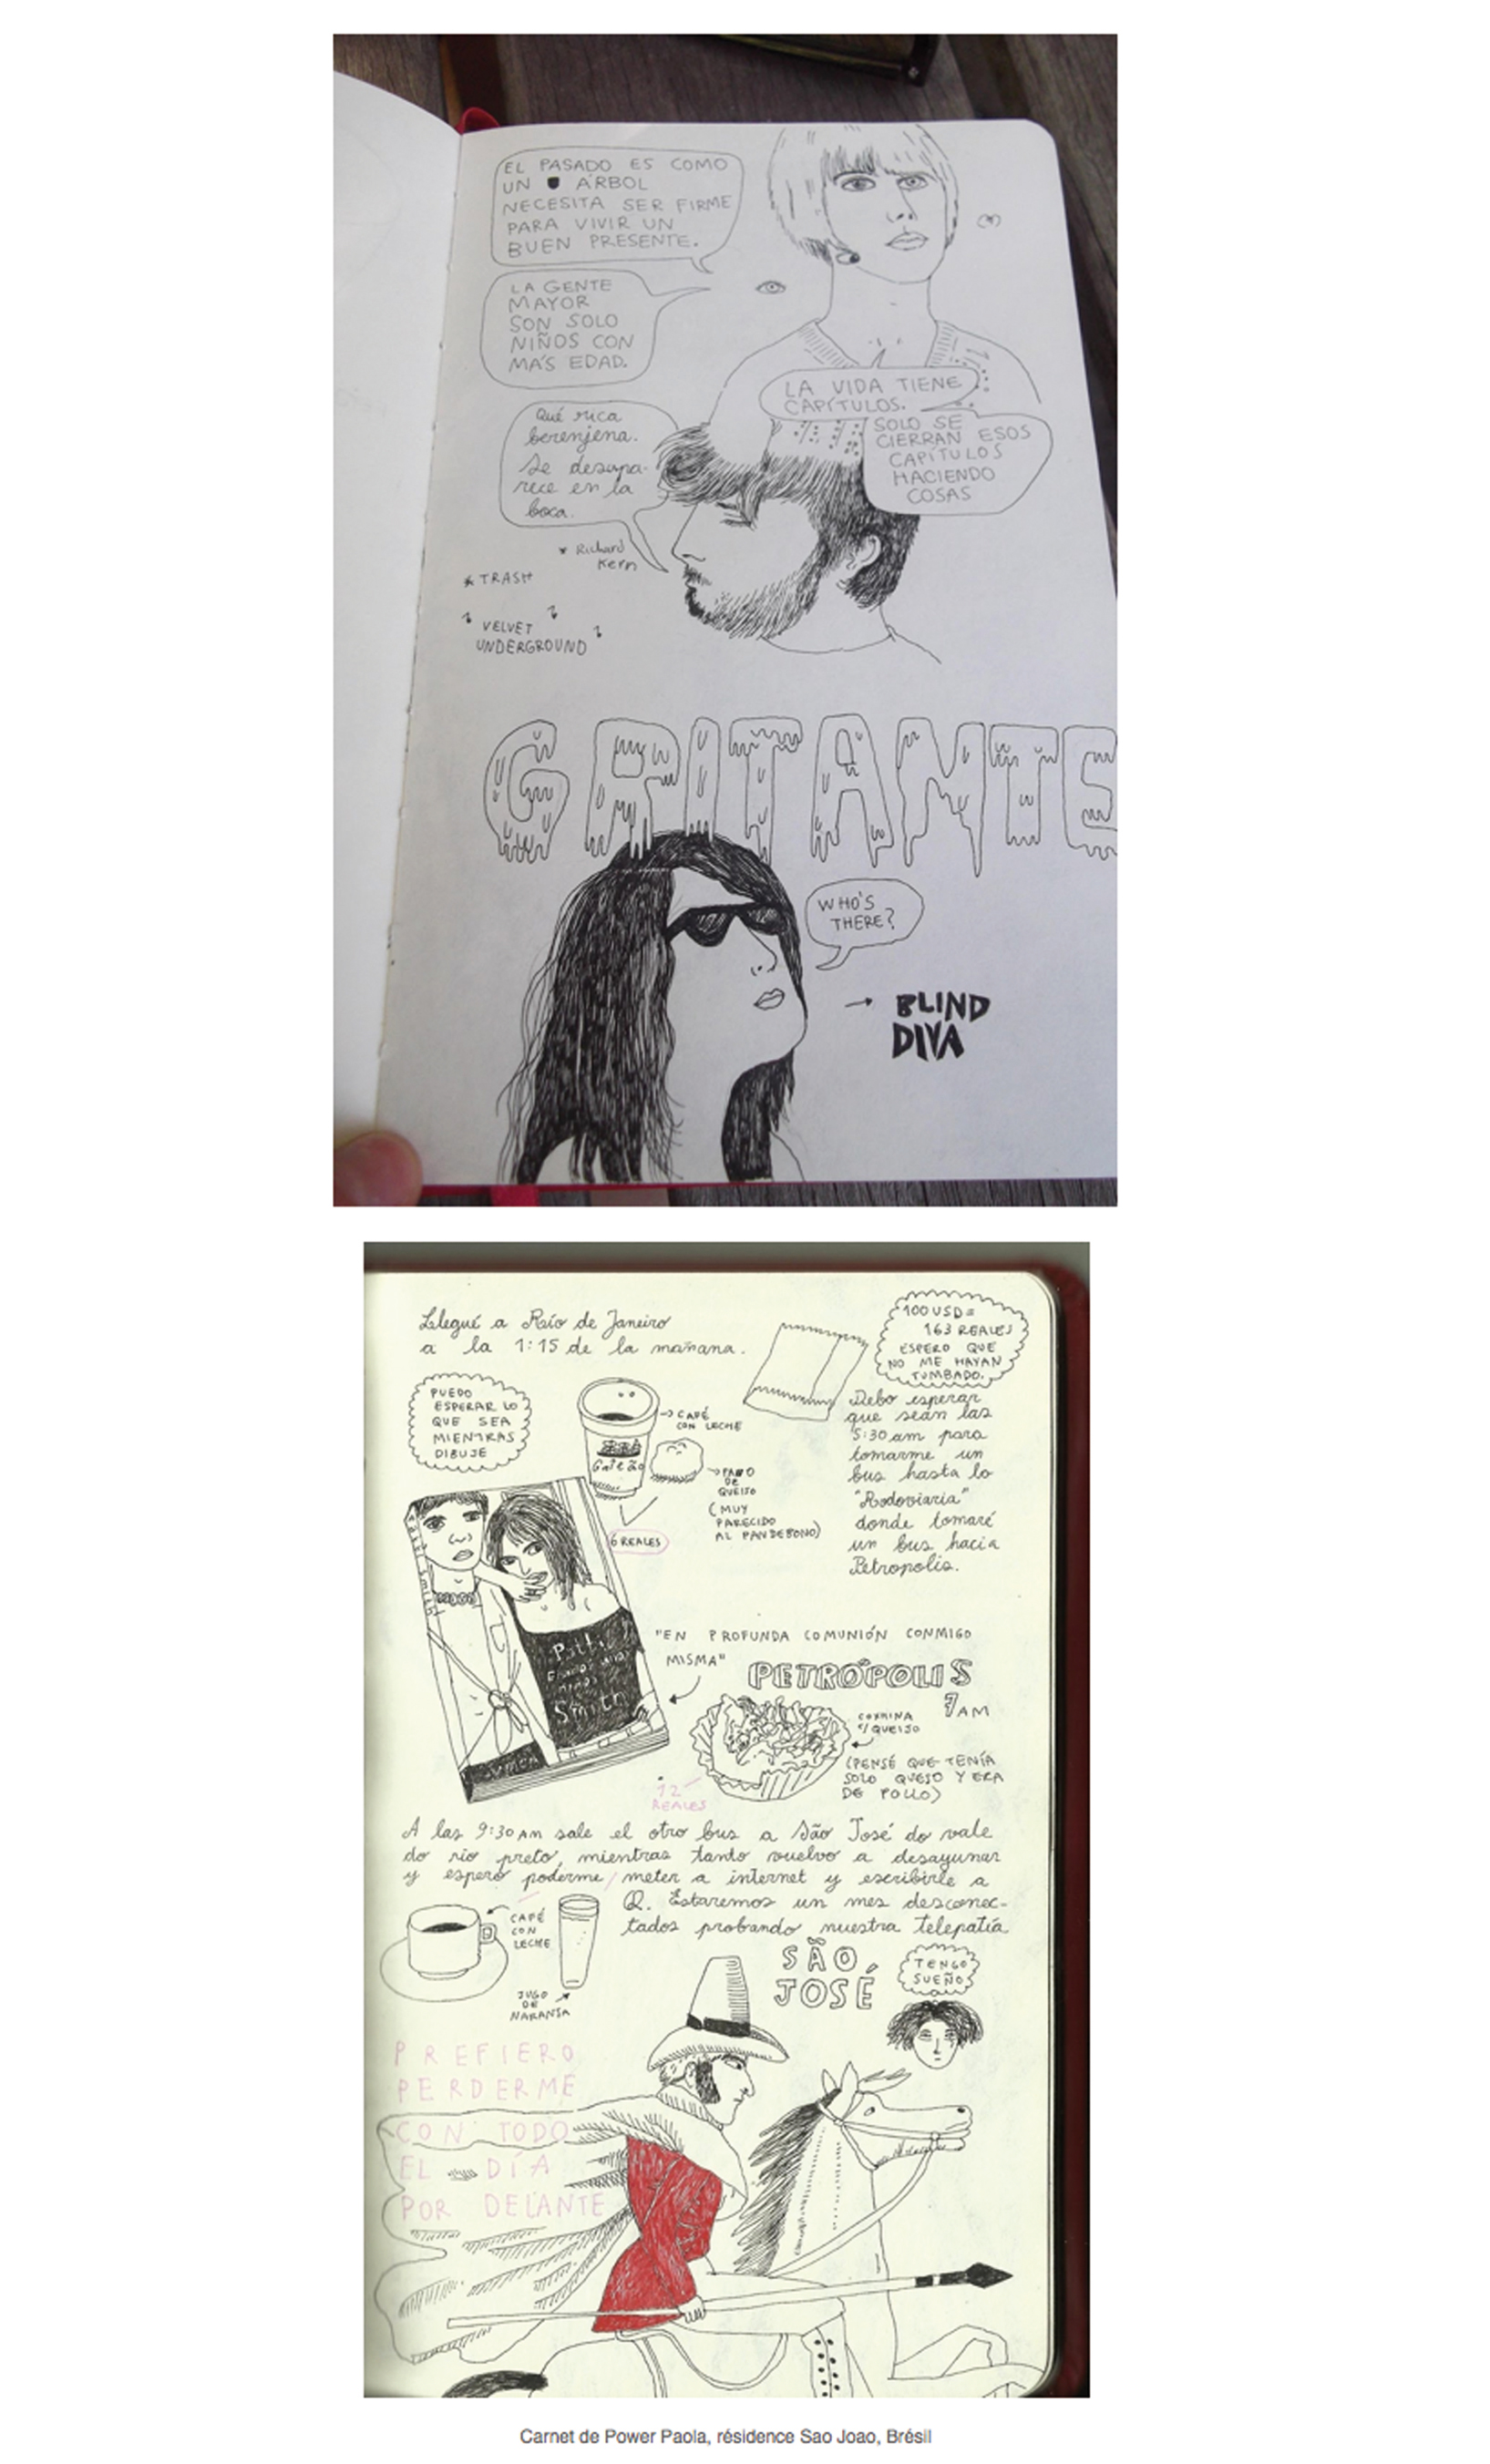 EL PASADO ES COMO
UN ÁRBOL
NECESITA SER FIRME
PARA VIVIR UN
BUEN PRESENTE.
LA GENTE
MAYOR
SON SOLO
NIÑOS CON
MÁS EDAD.
LA VIDA TIENE
CAPÍTULOS.
SOLO SE
CIERRAN ESOS
CAPÍTULOS
HACIENDO
COSAS
Qué rica
berenjena.
Se desapa-
rece en la
boca.
* Richard
Kern
* TRASH
VELVET
UNDERGROUND
GRITANTE
WHO'S
THERE?
→ BLIND
DIVA
Llegué a Río de Janeiro
a la 1:15 de la mañana.
100 USD =
163 REALES
ESPERO QUE
NO ME HAYAN
TUMBADO.
PUEDO
ESPERAR LO
QUE SEA
MIENTRAS
DIBUJE
→ CAFÉ
CON LECHE
Galeão
→ PAO
DE
QUEIJO
(MUY
PARECIDO
AL PANDEBONO)
6 REALES
Debo esperar
que sean las
5:30 am para
tomarme un
bus hasta lo
"Rodoviaria"
donde tomaré
un bus hacia
Petropolis.
Patti Smith
Patti
Smith
"EN PROFUNDA COMUNIÓN CONMIGO
MISMA"
PETRÓPOLIS
7 AM
COXINA
C/ QUEIJO
(PENSÉ QUE TENÍA
SOLO QUESO Y ERA
DE POLLO)
12
REALES
A las 9:30 AM sale el otro bus a São José do vale
do rio preto, mientras tanto vuelvo a desayunar
y espero poderme meter a internet y escribirle a
Q. Estaremos un mes desconec-
tados probando nuestra telepatía
CAFÉ
CON
LECHE
JUGO
DE
NARANJA
SÃO
JOSÉ
TENGO
SUEÑO
PREFIERO
PERDERME
CON TODO
EL DÍA
POR DELANTE
Carnet de Power Paola, résidence Sao Joao, Brésil